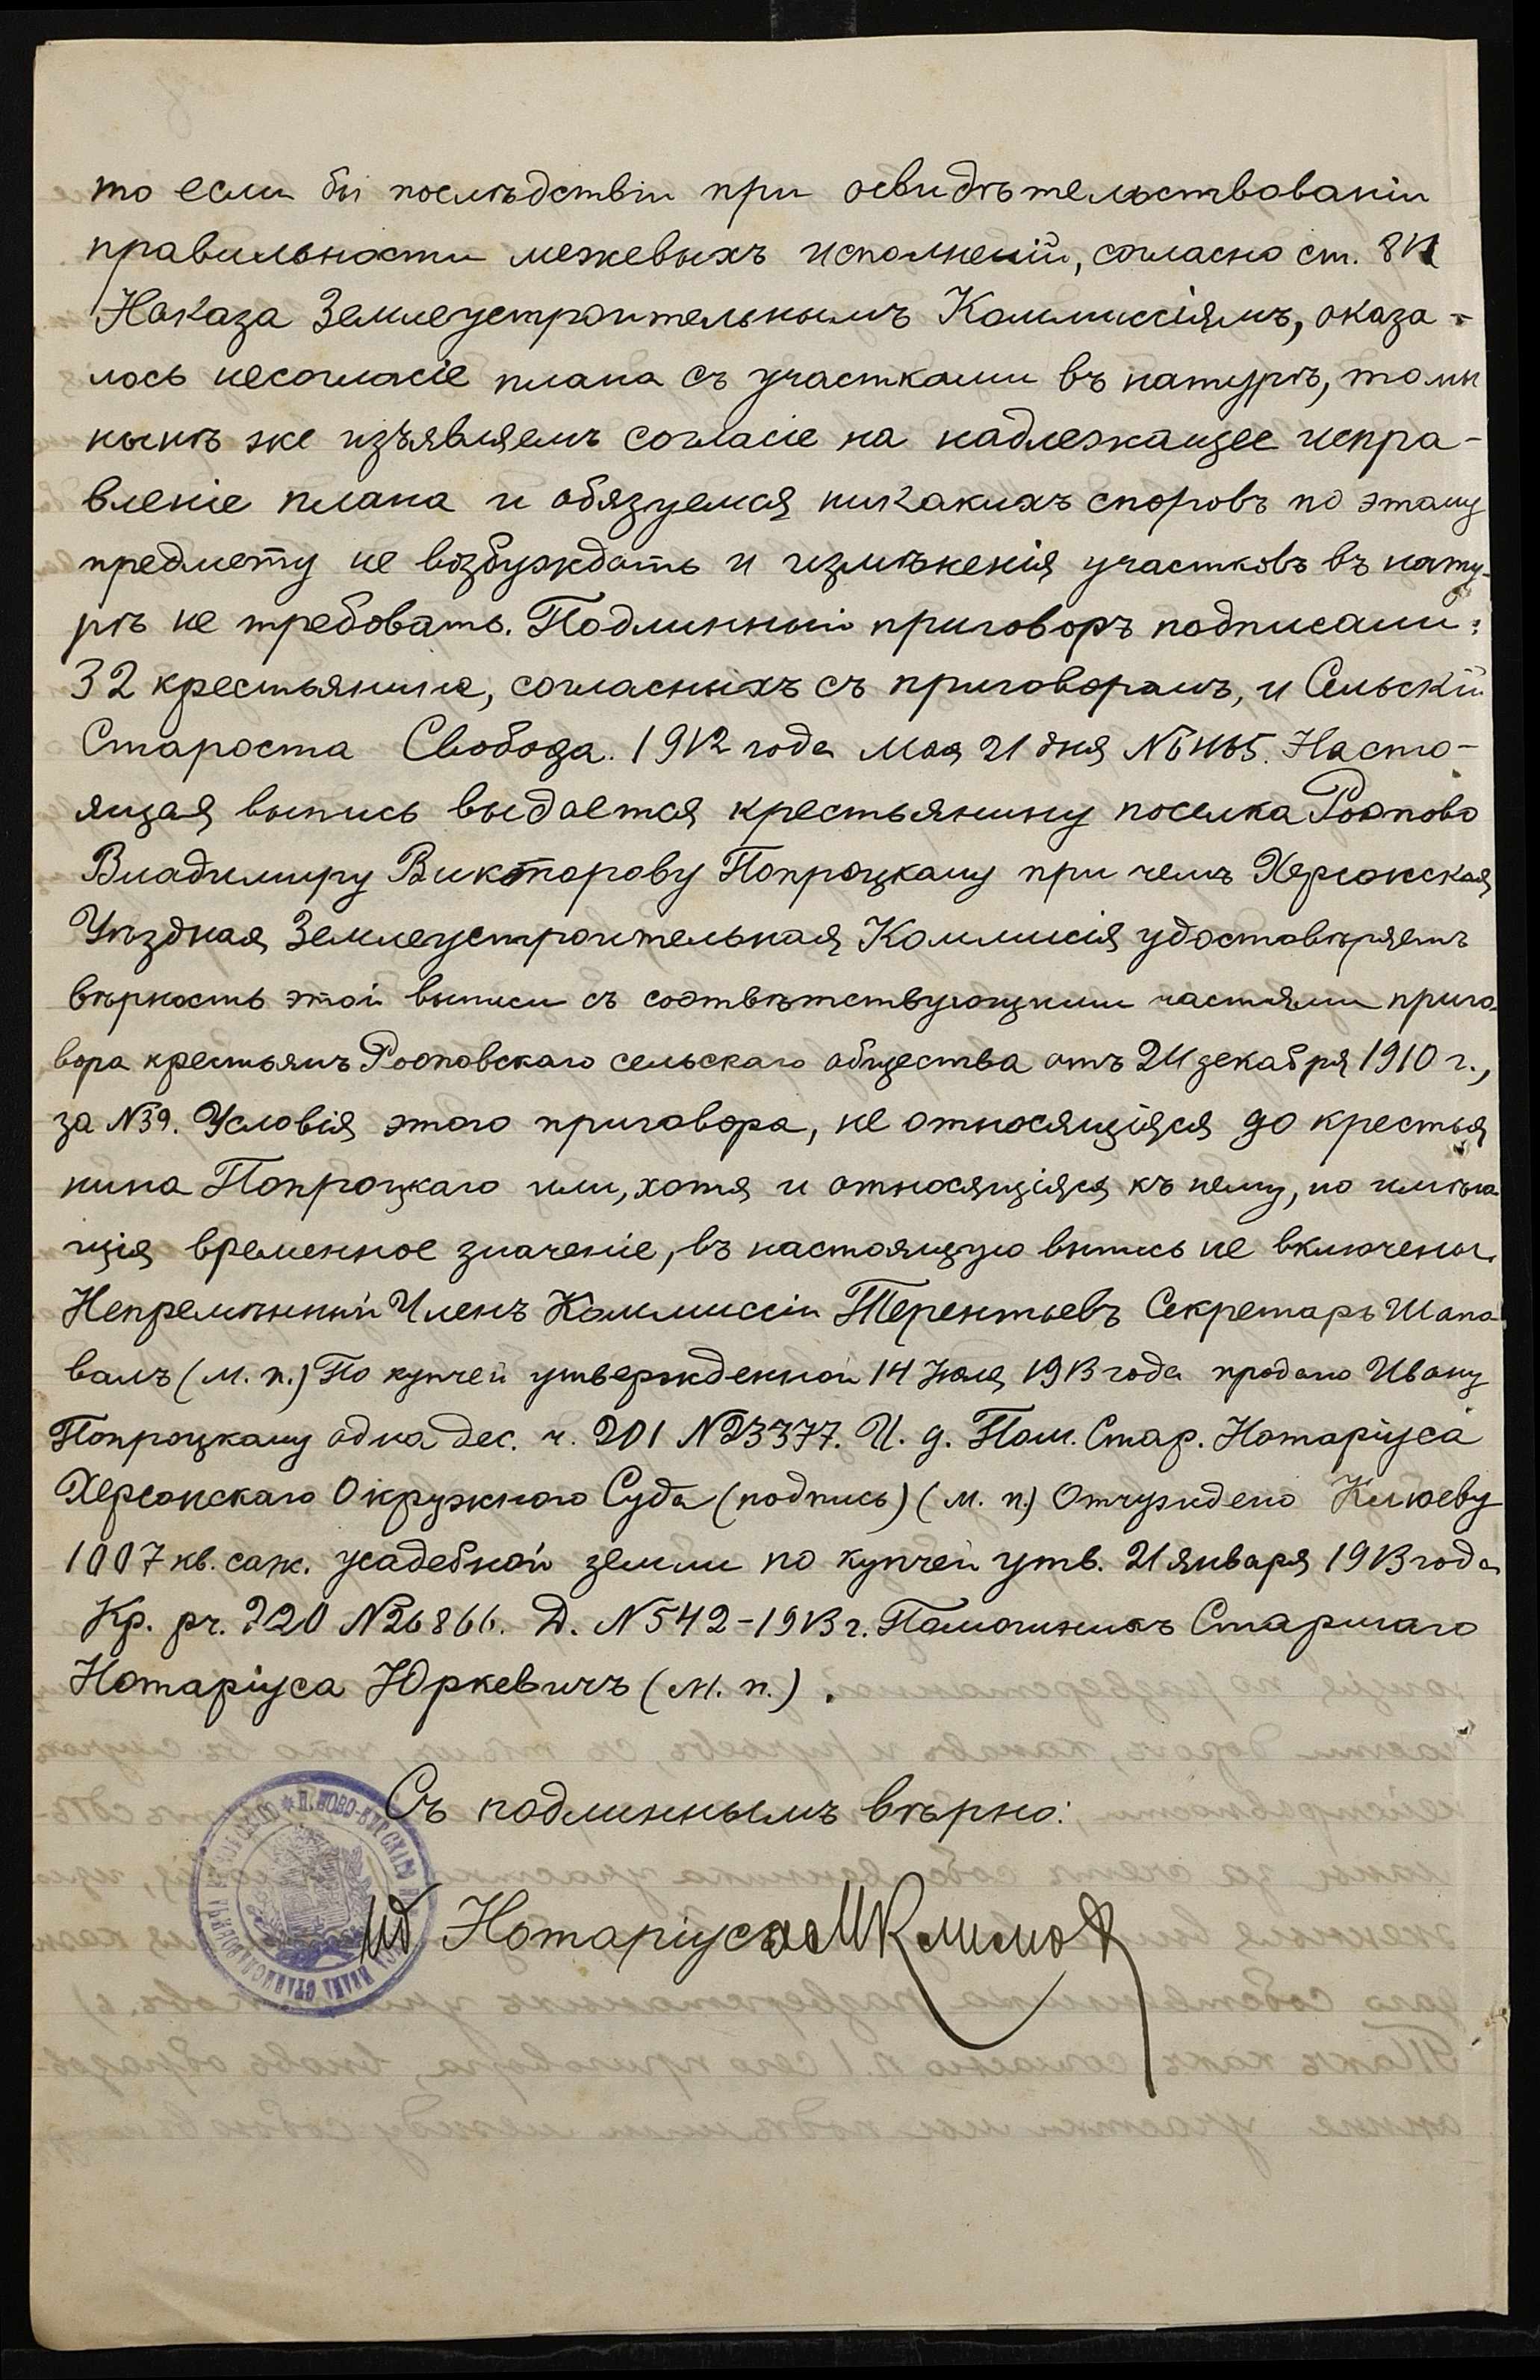 то если бы послѣдствіи при освидѣтельствованіи
правильности межевыхъ исполненій, согласно ст.
Наказа Землеустроительнымъ Коммиссіямъ, оказа-
лось несогласіе плана съ участками въ натурѣ, то мы
нынѣ же изъявляемъ согласіе на надлежащее испра-
вленіе плана и обязуемся никакихъ споровъ по этому
предмету не возбуждать и измѣненія участковъ въ нату-
рѣ не требовать. Подлинный приговоръ подписали:
32 крестьянина, согласныхъ съ приговоромъ, и Сельскій
Староста Свобода. 1912 года Мая 21 дня Насто-
ящая выпись выдается крестьянину поселка Роопово
Владимиру Викторову Попроцкому при чемъ Херсонская
Уѣздная Землеустроительная Коммисія удостовѣряетъ
вѣрность этой выписи съ соотвѣтствующими частями приго-
вора крестьянъ Рооповскаго сельскаго общества отъ 21 декабря 1910 г.,
за №39. Условія этого приговора, не относящіяся до крестья
нина Попроцкаго или, хотя и относящіяся къ нему, но имѣю
щія временное значеніе, въ настоящую выпись не включены.
Непремѣнный Членъ Коммиссіи Терентьевъ Секретарь Шапо-
валъ (м. п.) По купчей утвержденной 14 Іюля 1913 года продано Ивану
Попроцкому одна дес. ч. 201 №23377. И. д. Пом. Стар. Нотаріуса
Херсонскаго Окружного Суда (подпись) (м. п.) Отчуждено Клюеву
1007 кв. саж. усадебной земли по купчей утв. 21 января 1913 года
Кр. рч. 220 №26866. Д. №542-1913 г. Помощникъ Старшаго
Нотаріуса Юркевичъ (м. п.).
Съ подлиннымъ вѣрно:
Ид Нотаріуса